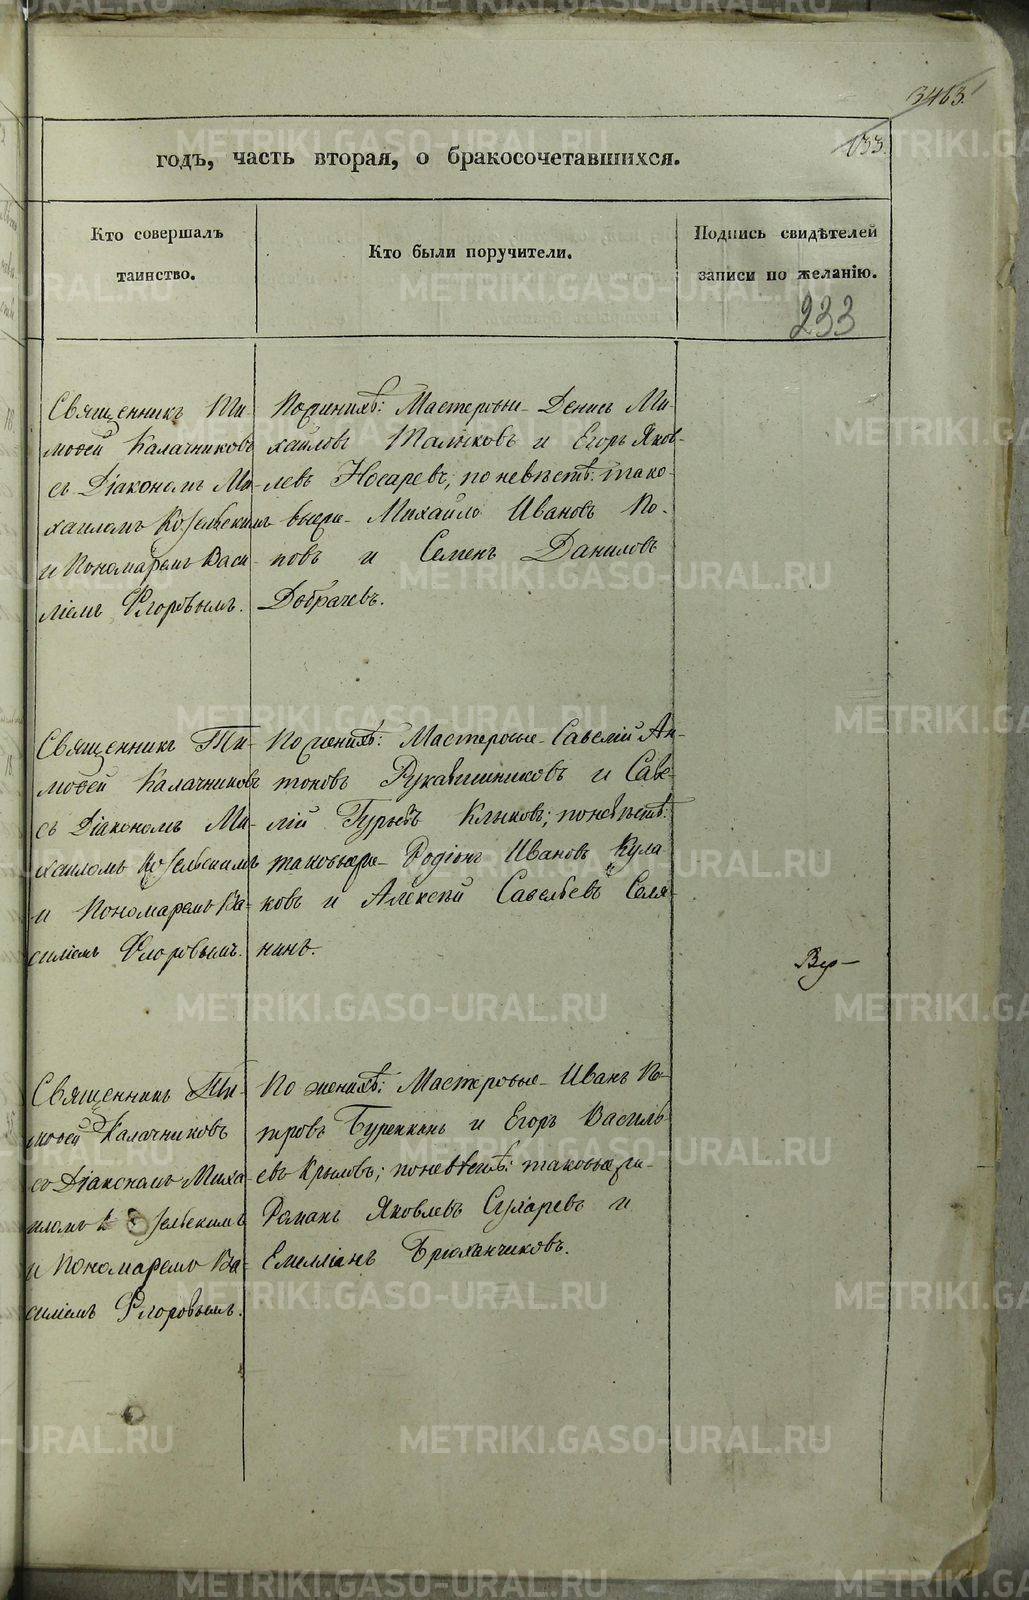 3463.
133.
годъ, часть вторая, о бракосочетавшихся.
Кто совершалъ
таинство.
Кто были поручители.
Подпись свидѣтелей
записи по желанію.
233
Священникъ Ти-
моѳей Калачниковъ
съ Діакономъ Ми-
хаиломъ Козельскимъ
и Пономаремъ Васи-
ліемъ Флоровымъ.
По женихѣ: Мастеровые Денисъ Ми-
хаиловъ Талыковъ и Егоръ Яков-
левъ Носаревъ; по невѣстѣ: тако-
выеже Михайло Ивановъ По-
повъ и Семенъ Даниловъ
Добрачевъ.
Священникъ Ти-
моѳей Калачниковъ
съ Діакономъ Ми-
хаиломъ Козельскимъ
и Пономаремъ Ва-
силіемъ Флоровымъ.
По женихѣ: Мастеровые Савелій Ан-
тоновъ Рукавишниковъ и Саве-
лій Гурьевъ Клыковъ; по невѣстѣ:
таковыеже Родіонъ Ивановъ Кула
ковъ и Алексѣй Савельевъ Соля-
нинъ.
Священникъ Ти-
моѳей Калачниковъ
съ Діакономъ Миха-
иломъ Козельскимъ
и Пономаремъ Ва-
силіемъ Флоровымъ.
По женихѣ: Мастеровые Иванъ Пе-
тровъ Буренкинъ и Егоръ Василь
евъ Крыловъ; по невѣстѣ: таковыеже
Романъ Яковлевъ Сухаревъ и
Емеліянъ Брюханчиковъ.
METRIKI.GASO-URAL.RU